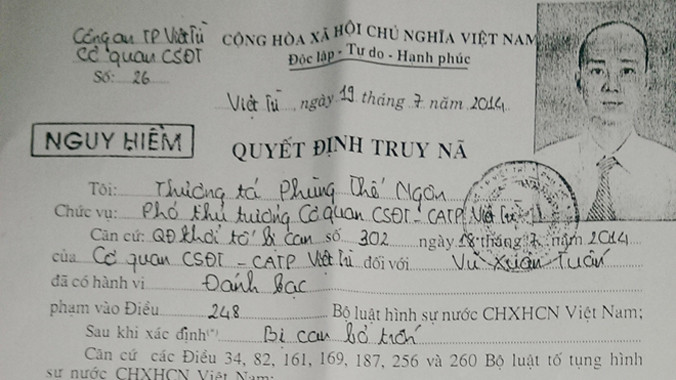 Công an TP Việt Trì
Cơ quan CSĐT
Số: 26
CỘNG HÒA XÃ HỘI CHỦ NGHĨA VIỆT NAM
Độc lập - Tự do - Hạnh phúc
Việt Trì, ngày 19 tháng 7 năm 2014
NGUY HIỂM
QUYẾT ĐỊNH TRUY NÃ
Tôi: Thượng tá Phùng Thế Ngôn
Chức vụ: Phó thủ trưởng Cơ quan CSĐT - CATP Việt Trì
Căn cứ: QĐ khởi tố bị can số 302 ngày 18 tháng 7 năm 2014
của Cơ quan CSĐT - CATP Việt Trì đối với Vũ Xuân Tuấn
đã có hành vi Đánh bạc
phạm vào Điều 248 Bộ luật hình sự nước CHXHCN Việt Nam;
Sau khi xác định(*) Bị can bỏ trốn
Căn cứ các Điều 34, 82, 161, 169, 187, 256 và 260 Bộ luật tố tụng hình
sự nước CHXHCN Việt Nam;